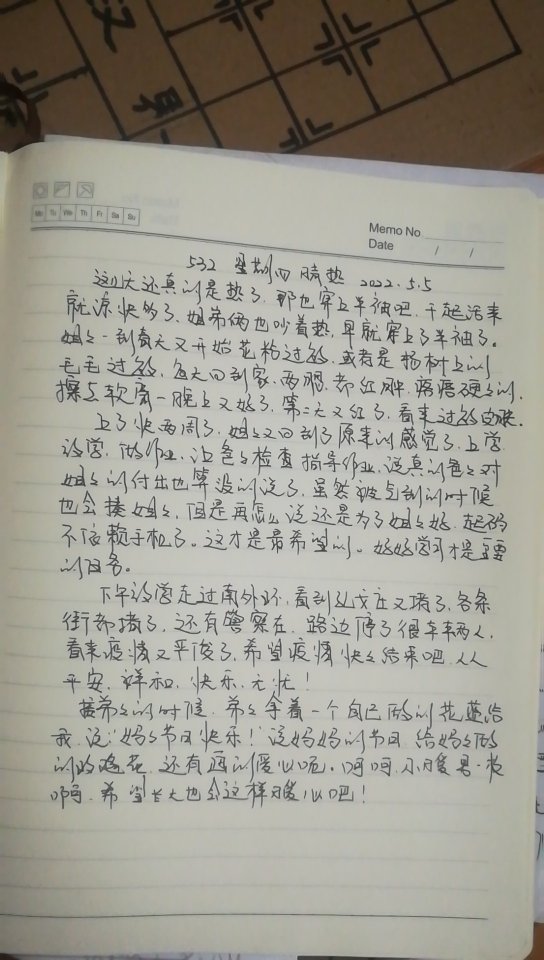 汉界
Mo Tu We Th Fr Sa Su
Memo No
Date / /
532 星期四 晴热 2022.5.5
这几天还真的是热了，那也穿上半袖吧，干起活来
就凉快多了，姐弟俩也吵着热，早就穿上了半袖了。
姐姐一到春天又开始花粉过敏，或者是杨树上的
毛毛过敏，每天回到家，两眼都红肿，疼痒硬硬的，
擦点软膏一晚上又好了，第二天又红了，看来过敏
上了快两周了，姐姐又回到了原来的感觉了，上学
放学，做作业，让爸爸检查指导作业，说真的爸爸对
姐姐的付出也算没的说了，虽然被气到的时候
也会揍姐姐，但是再怎么说还是为了姐姐好，起码
不依赖手机了。这才是最希望的。好好学习才是主要
的任务。
下午放学走过南外环，看到戈庄又堵了，各条
街都堵了，还有警察在，路边停了很车辆人，
看来疫情又严峻了，希望疫情快快结束吧，人人
平安，祥和，快乐，无忧！
接弟弟的时候，弟弟拿着一个自己做的花送给
我，说：妈妈节日快乐！说妈妈的节日，给妈妈做
的玫瑰花，还有画的爱心呢，呵呵，小暖男一枚
啊，希望长大也会这样暖心吧！